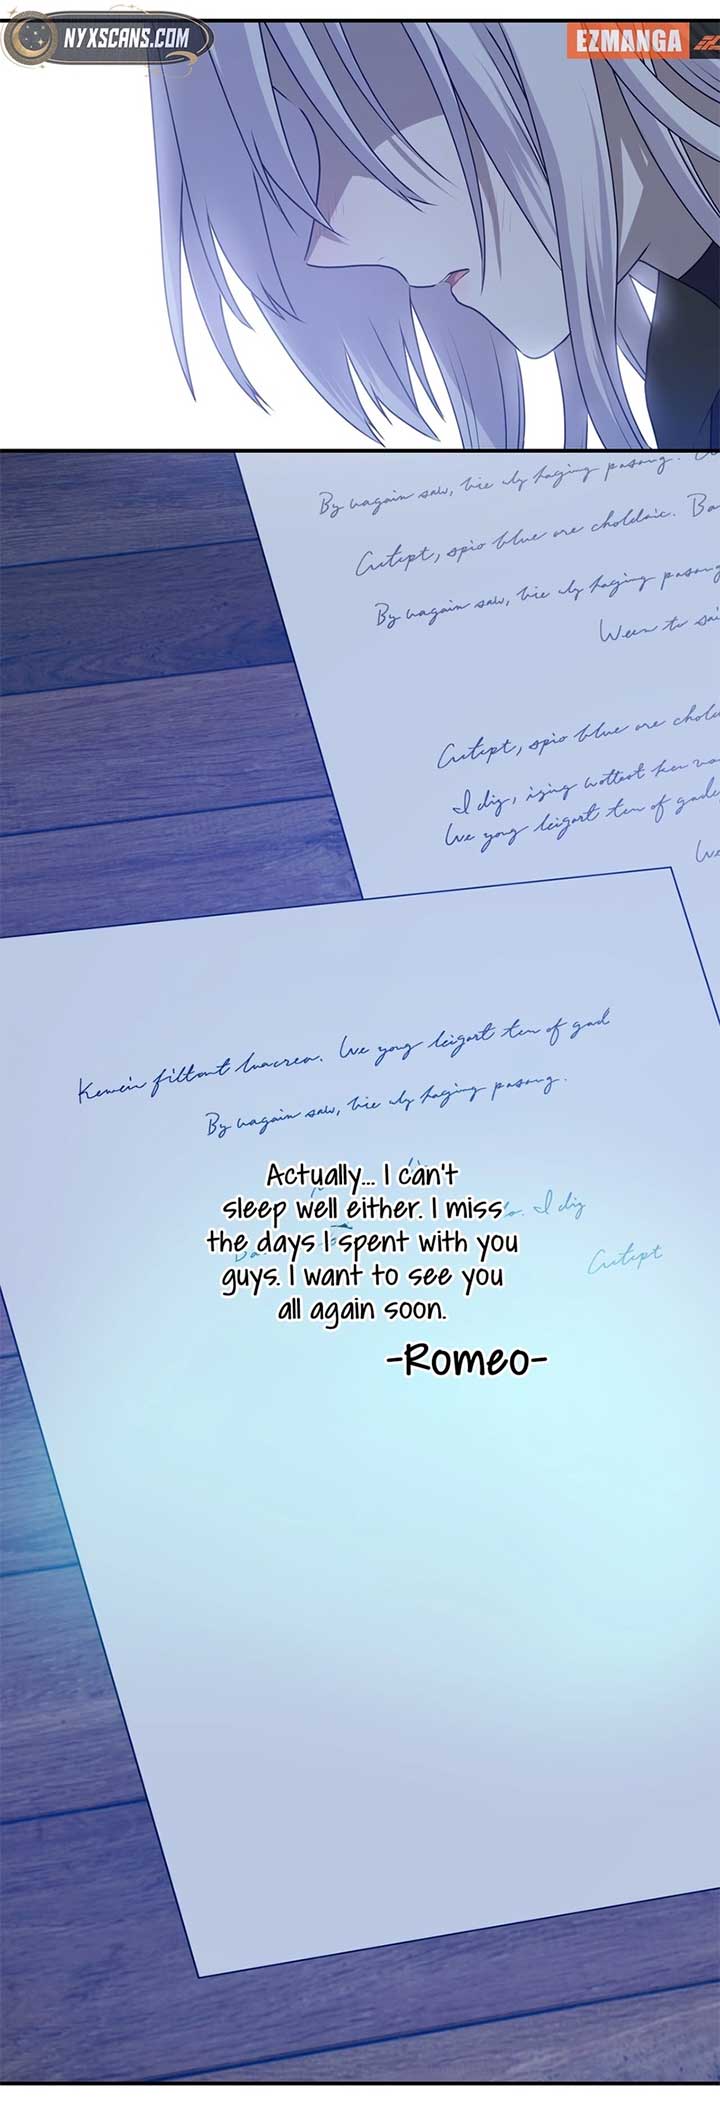 NYXSCANS.COM
EZMANGA
By wagain saw, bie uly haging pasong.
Cutept, spio blue are choldaic. Ba
By wagain saw, bie uly haging pasong
Ween to sai
Cutept, spio blue are chola
I dig, iging wottest ker
We yong leigart ten of gade
We
Kewein filtont luacrea. We yong leigart ten of gad
By wagain saw, bie uly haging pasong.
I dig
Cutept
Actually... I can't
sleep well either. I miss
the days I spent with you
guys. I want to see you
all again soon.
-Romeo-